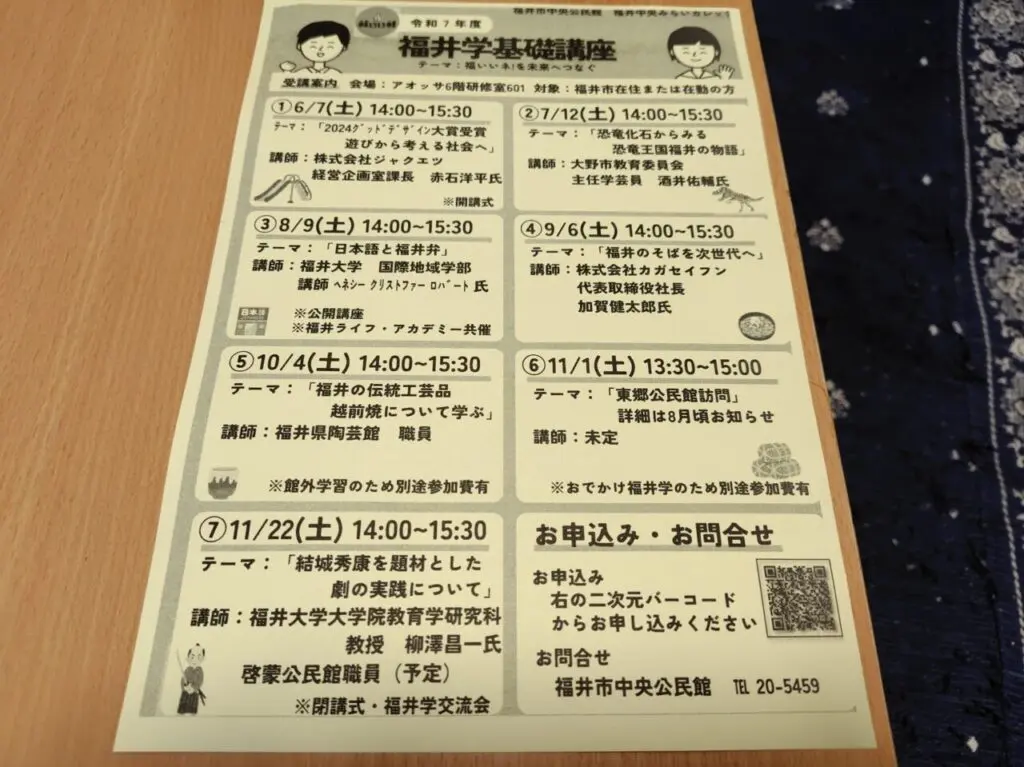 福井市中央公民館 福井中央みらいカレッジ
令和7年度
福井学基礎講座
テーマ：福いいネ!を未来へつなぐ
受講案内 会場：アオッサ6階研修室601 対象：福井市在住または在勤の方
①6/7(土) 14:00~15:30
テーマ：「2024グッドデザイン大賞受賞
遊びから考える社会へ」
講師：株式会社ジャクエツ
経営企画室課長 赤石洋平氏
※開講式
②7/12(土) 14:00~15:30
テーマ：「恐竜化石からみる
恐竜王国福井の物語」
講師：大野市教育委員会
主任学芸員 酒井佑輔氏
③8/9(土) 14:00~15:30
テーマ：「日本語と福井弁」
講師：福井大学 国際地域学部
講師 ヘネシー クリストファー ロバート 氏
日本語
※公開講座
※福井ライフ・アカデミー共催
④9/6(土) 14:00~15:30
テーマ：「福井のそばを次世代へ」
講師：株式会社カガセイフン
代表取締役社長
加賀健太郎氏
⑤10/4(土) 14:00~15:30
テーマ：「福井の伝統工芸品
越前焼について学ぶ」
講師：福井県陶芸館 職員
※館外学習のため別途参加費有
⑥11/1(土) 13:30~15:00
テーマ：「東郷公民館訪問」
詳細は8月頃お知らせ
講師：未定
※おでかけ福井学のため別途参加費有
⑦11/22(土) 14:00~15:30
テーマ：「結城秀康を題材とした
劇の実践について」
講師：福井大学大学院教育学研究科
教授 柳澤昌一氏
啓蒙公民館職員（予定）
※閉講式・福井学交流会
お申込み・お問合せ
お申込み
右の二次元バーコード
からお申し込みください
お問合せ
福井市中央公民館 TEL 20-5459